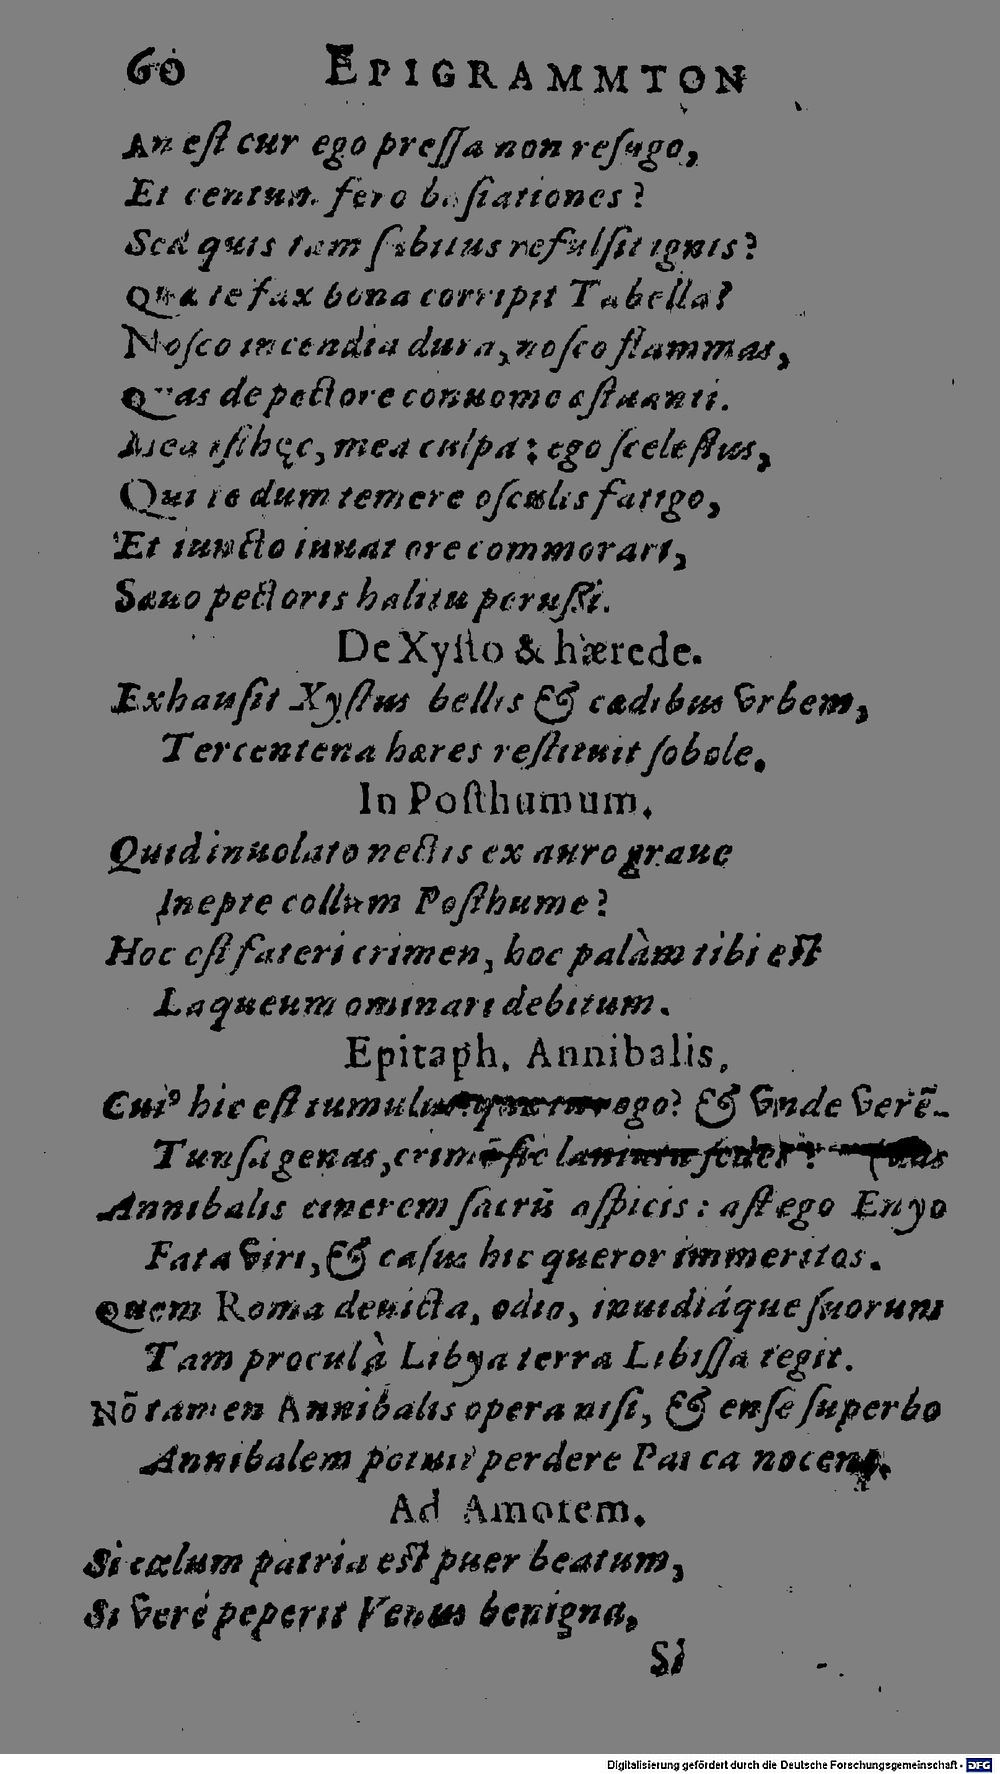 60 EPIGRAMMTON
An eſt cur ego preſſa non reſugo,
Et centum fero baſiationes?
Sed quis tam ſubitus refulſit ignis?
Qua te fax bona corripit Tabella?
Noſco incendia dura, noſco flammas,
Quas de pectore conuomo æſtuanti.
Mea iſthęc, mea culpa: ego ſceleſtus,
Qui te dum temere oſculis fatigo,
Et iuncto iuuat ore commorari,
Sæuo pectoris halitu peruſſi.
De Xyſto & hærede.
Exhauſit Xyſtus bellis & cædibus vrbem,
Tercentena hæres reſtituit ſobole.
In Poſthumum.
Quid inuoluto nectis ex auro graue
Inepte collum Poſthume?
Hoc eſt fateri crimen, hoc palàm tibi eſt
Laqueum ominari debitum.
Epitaph. Annibalis.
Cui⁹ hic eſt tumulus ego? & vnde verē-
Tunſa genas, crimē ſic (das
Annibalis cinerem ſacrū aſpicis: aſt ego Enyo
Fata viri, & caſus hic queror immeritos.
Quem Roma deuicta, odio, inuidiáque ſuorum
Tam procul à Libya terra Libiſſa tegit.
Nō tamen Annibalis opera niſi, & enſe ſuperbo
Annibalem potuit perdere Parca nocens.
Ad Amorem.
Si cœlum patria eſt puer beatum,
Si verè peperit Venus benigna,
Si
Digitalisierung gefördert durch die Deutsche Forschungsgemeinschaft - DFG